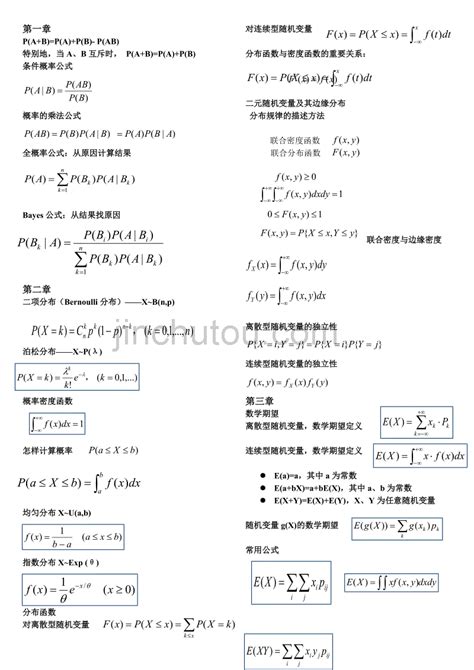 第一章
P(A+B)=P(A)+P(B)- P(AB)
特别地，当 A、B 互斥时， P(A+B)=P(A)+P(B)
条件概率公式
P(A | B) = P(AB) / P(B)
概率的乘法公式
P(AB) = P(B)P(A | B) = P(A)P(B | A)
全概率公式：从原因计算结果
P(A) = ∑_{k=1}^{n} P(B_k)P(A | B_k)
Bayes 公式：从结果找原因
P(B_k | A) = P(B_i)P(A | B_i) / ∑_{k=1}^{n} P(B_k)P(A | B_k)
第二章
二项分布（Bernoulli 分布）——X~B(n,p)
P(X = k) = C_n^k p^k (1-p)^{n-k}， (k = 0,1,...,n)
泊松分布——X~P(λ)
P(X = k) = λ^k / k! e^{-λ}， (k = 0,1,...)
概率密度函数
∫_{-∞}^{+∞} f(x)dx = 1
怎样计算概率 P(a ≤ X ≤ b)
P(a ≤ X ≤ b) = ∫_a^b f(x)dx
均匀分布 X~U(a,b)
f(x) = 1 / (b-a) (a ≤ x ≤ b)
指数分布 X~Exp (θ)
f(x) = 1/θ e^{-x/θ} (x ≥ 0)
分布函数
对离散型随机变量 F(x) = P(X ≤ x) = ∑_{k≤x} P(X = k)
对连续型随机变量 F(x) = P(X ≤ x) = ∫_{-∞}^{x} f(t)dt
分布函数与密度函数的重要关系：
F(x) = P(X ≤ x) = ∫_{-∞}^{x} f(t)dt
二元随机变量及其边缘分布
分布规律的描述方法
联合密度函数 f(x, y)
联合分布函数 F(x, y)
f(x, y) ≥ 0
∫_{-∞}^{+∞}∫_{-∞}^{+∞} f(x, y)dxdy = 1
0 ≤ F(x, y) ≤ 1
F(x, y) = P{X ≤ x, Y ≤ y}
联合密度与边缘密度
f_X(x) = ∫_{-∞}^{+∞} f(x, y)dy
f_Y(y) = ∫_{-∞}^{+∞} f(x, y)dx
离散型随机变量的独立性
P{X = i, Y = j} = P{X = i}P{Y = j}
连续型随机变量的独立性
f(x, y) = f_X(x)f_Y(y)
第三章
数学期望
离散型随机变量，数学期望定义 E(X) = ∑_{k=-∞}^{+∞} x_k · P_k
连续型随机变量，数学期望定义 E(X) = ∫_{-∞}^{+∞} x · f(x)dx
● E(a)=a，其中 a 为常数
● E(a+bX)=a+bE(X)，其中 a、b 为常数
● E(X+Y)=E(X)+E(Y)，X、Y 为任意随机变量
随机变量 g(X)的数学期望 E(g(X)) = ∑_k g(x_k)p_k
常用公式
E(X) = ∑_i ∑_j x_i p_{ij}
E(X) = ∫∫ xf(x, y)dxdy
E(XY) = ∑_i ∑_j x_i y_j p_{ij}